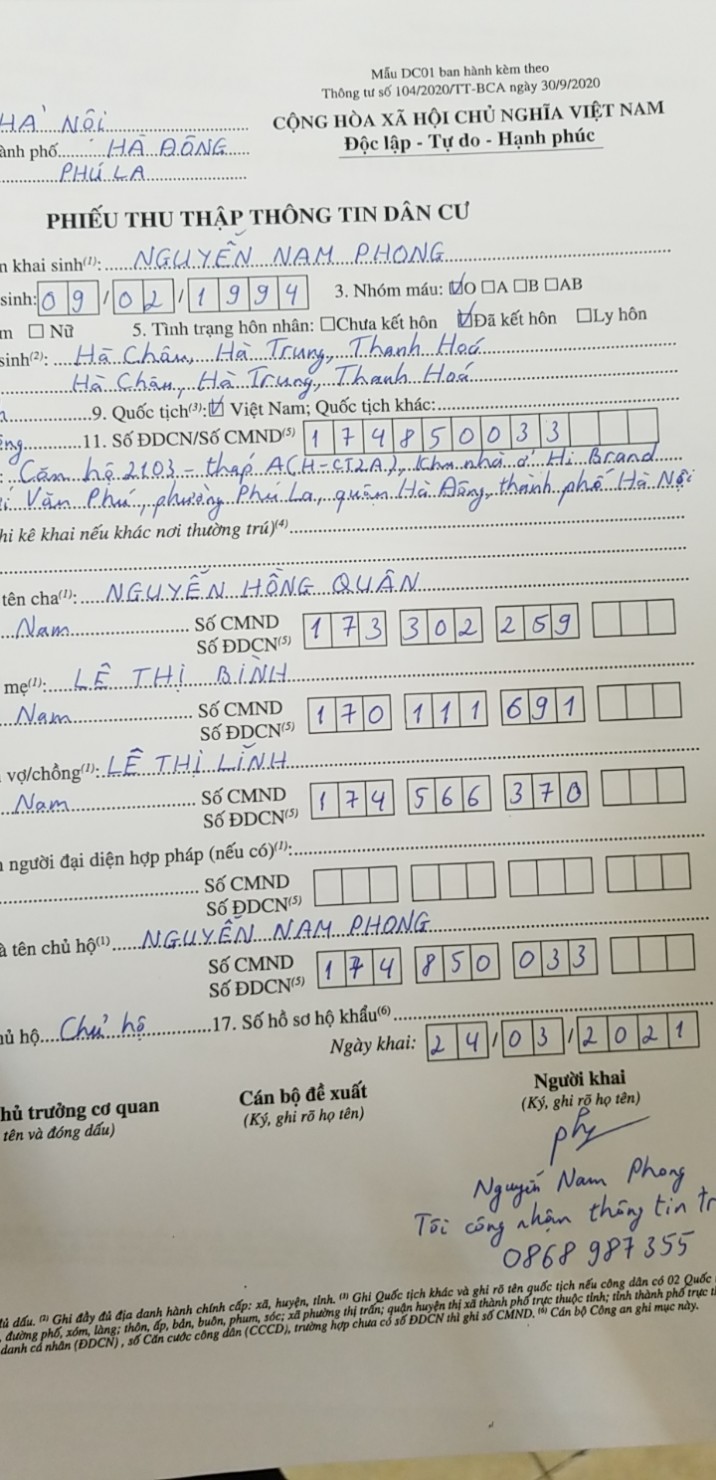 Mẫu DC01 ban hành kèm theo
Thông tư số 104/2020/TT-BCA ngày 30/9/2020
HÀ NỘI
CỘNG HÒA XÃ HỘI CHỦ NGHĨA VIỆT NAM
ành phố HÀ ĐÔNG
Độc lập - Tự do - Hạnh phúc
PHÚ LA
PHIẾU THU THẬP THÔNG TIN DÂN CƯ
n khai sinh(1): NGUYỄN NAM PHONG
sinh: 09/02/1994 3. Nhóm máu: ☑O ☐A ☐B ☐AB
m ☐ Nữ 5. Tình trạng hôn nhân: ☐Chưa kết hôn ☑Đã kết hôn ☐Ly hôn
sinh(2): Hà Châu, Hà Trung, Thanh Hoá
Hà Châu, Hà Trung, Thanh Hoá
9. Quốc tịch(3): ☑ Việt Nam; Quốc tịch khác:
11. Số ĐDCN/Số CMND(5) 174850033
Căn hộ 2103 - tháp ACH-CT2A), khu nhà ở Hi Brand
Văn Phú, phường Phú La, quận Hà Đông, thành phố Hà Nội
hi kê khai nếu khác nơi thường trú)(4)
tên cha(1): NGUYỄN HỒNG QUÂN
Nam Số CMND
Số ĐDCN(5) 173 302 259
mẹ(1): LÊ THỊ BÌNH
Nam Số CMND
Số ĐDCN(5) 170 111 691
vợ/chồng(1): LÊ THỊ LĨNH
Nam Số CMND
Số ĐDCN(5) 174 566 370
người đại diện hợp pháp (nếu có)(1):
Số CMND
Số ĐDCN(5)
à tên chủ hộ(1) NGUYỄN NAM PHONG
Số CMND
Số ĐDCN(5) 174 850 033
hủ hộ Chủ hộ 17. Số hồ sơ hộ khẩu(6)
Ngày khai: 24/03/2021
hủ trưởng cơ quan Cán bộ đề xuất Người khai
tên và đóng dấu) (Ký, ghi rõ họ tên) (Ký, ghi rõ họ tên)
Nguyễn Nam Phong
Tôi công nhận thông tin tr
0868 987 355
đủ dấu. (2) Ghi đầy đủ địa danh hành chính cấp: xã, huyện, tỉnh. (3) Ghi Quốc tịch khác và ghi rõ tên quốc tịch nếu công dân có 02 Quốc
, đường phố, xóm, làng; thôn, ấp, bản, buôn, phum, sóc; xã phường thị trấn; quận huyện thị xã thành phố trực thuộc tỉnh; tỉnh thành phố trực t
danh cá nhân (ĐDCN), số Căn cước công dân (CCCD), trường hợp chưa có số ĐDCN thì ghi số CMND. (6) Cán bộ Công an ghi mục này.